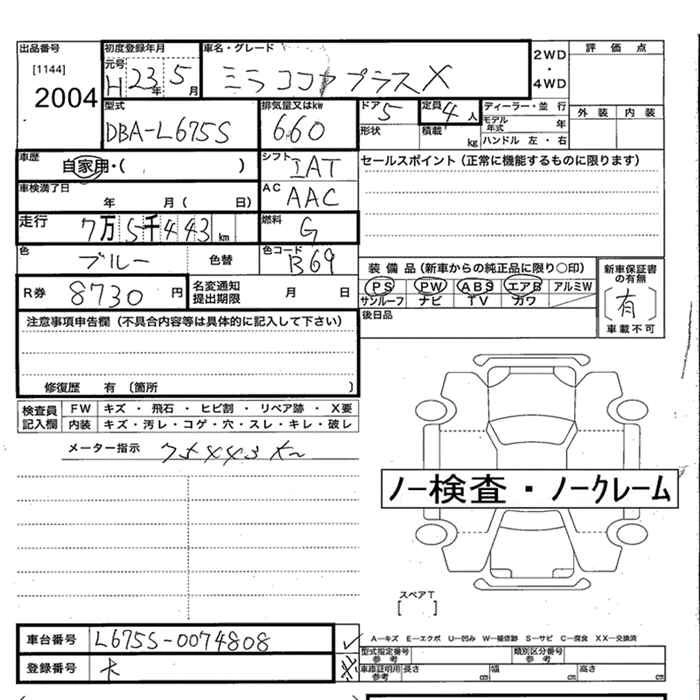 出品番号
[1144]
2004
初度登録年月
元号
H 23年 5月
車名・グレード
ミラココアプラスX
2WD
・
4WD
評価点
外装 内装
型式
DBA-L675S
排気量又はkw
660
ドア 5
形状
定員 4人
積載 kg
ディーラー・並行
モデル年式 年
ハンドル 左・右
車歴
自家用・( )
シフト IAT
セールスポイント(正常に機能するものに限ります)
車検満了日
年 月( 日)
AC AAC
走行
7万5千443km
燃料 G
色
ブルー
色替
色コード
B69
装備品(新車からの純正品に限り〇印)
PS PW ABS エアB アルミW
サンルーフ ナビ TV カワ
新車保証書の有無
[有]
車載不可
R券 8730円
名変通知
提出期限
月 日
後日品
注意事項申告欄(不具合内容等は具体的に記入して下さい)
修復歴 有 〔箇所 〕
検査員記入欄
FW キズ・飛石・ヒビ割・リペア跡・X要
内装 キズ・汚レ・コゲ・穴・スレ・キレ・破レ
メーター指示
ノー検査・ノークレーム
スペアT
[ ]
車台番号 L675S-0074808
登録番号
A―キズ E―エクボ U―凹み W―補修跡 S―サビ C―腐食 XX―交換済
型式指定番号
参考
類別区分番号
参考
車庫証明用
参考
長さ cm 幅 cm 高さ cm